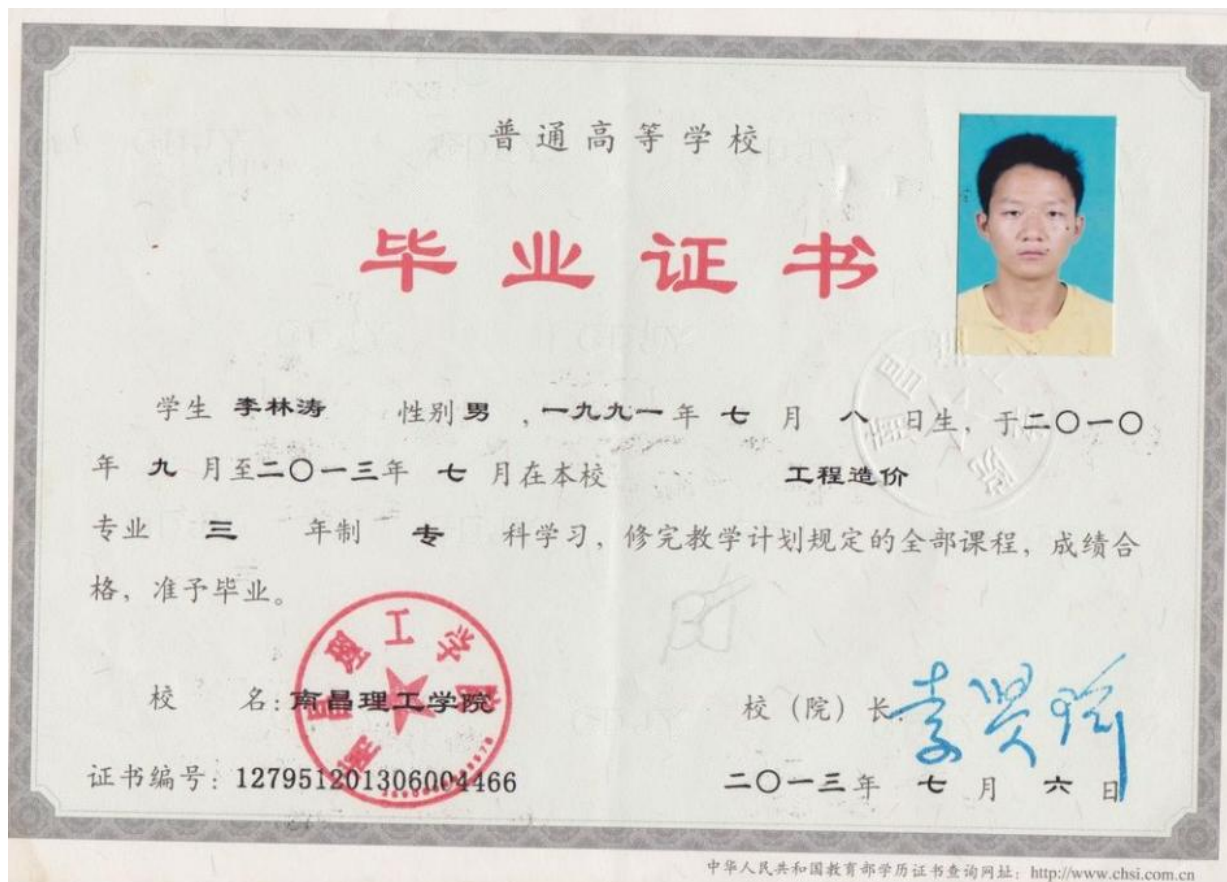 普通高等学校
毕业证书
学生 李林涛 性别 男 ,一九九一年 七 月 八 日生, 于二〇一〇
年 九 月至二〇一三年 七 月在本校 工程造价
专业 三 年制 专 科学习, 修完教学计划规定的全部课程, 成绩合
格, 准予毕业。
南昌理工学院
校 名: 南昌理工学院
校（院）长:
证书编号: 127951201306004466
二〇一三年 七 月 六 日
中华人民共和国教育部学历证书查询网址: http://www.chsi.com.cn